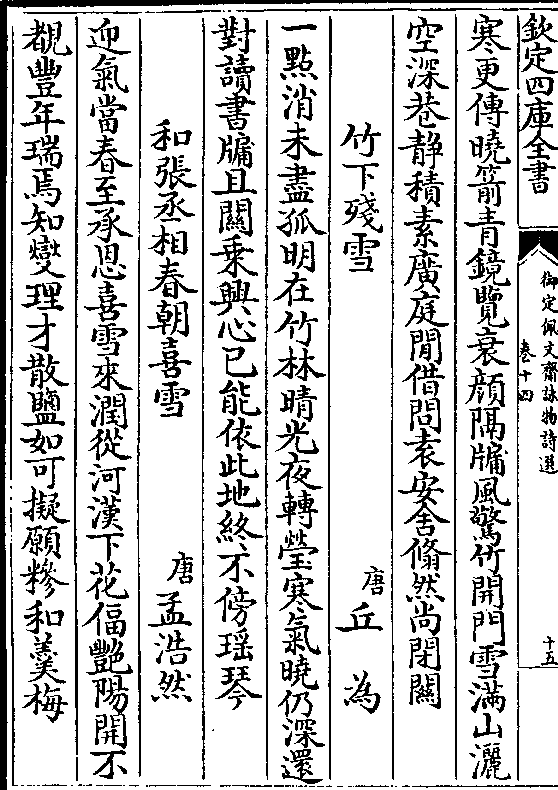 欽定四庫全書
御定佩文齋詠物詩選
卷十四
十五
寒更傳曉箭青鏡覽衰顔隔牖風驚竹開門雪滿山灑
空深巷静積素廣庭閒借問袁安舍翛然尚閉關
竹下殘雪
唐丘為
一點消未盡孤明在竹林晴光夜轉瑩寒氣曉仍深還
對讀書牖且關乗興心已能依此地終不傍瑶琴
和張丞相春朝喜雪
唐孟浩然
迎氣當春至承恩喜雪來潤從河漢下花偪艷陽開不
覩豐年瑞焉知燮理才散鹽如可擬願糝和羮梅